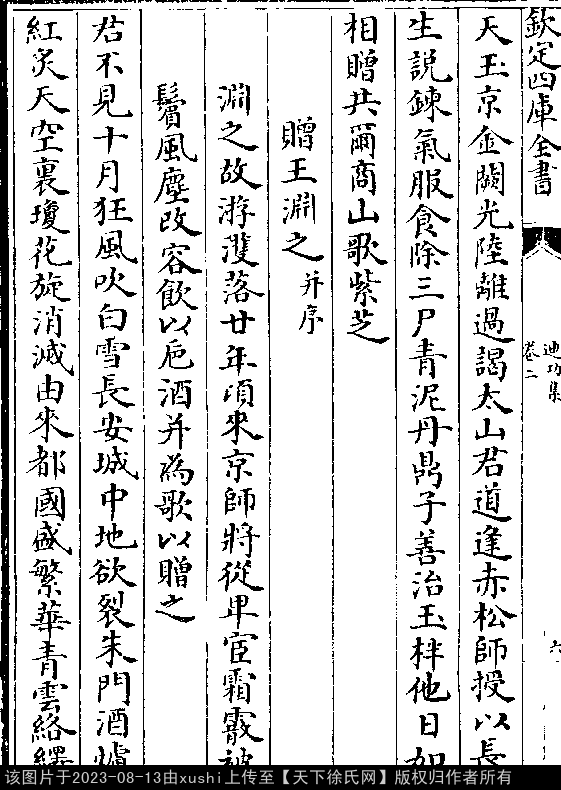 欽定四庫全書
迪功集
卷二
六
天玉京金闕光陸離過謁太山君道逢赤松師授以長
生說鍊氣服食除三尸青泥丹鼎子善治玉柈他日如
相贈共爾商山歌紫芝
贈王淵之并序
淵之故游濩落廿年頃來京師將從卑宦霜霰被
鬢風塵改容飲以巵酒并為歌以贈之
君不見十月狂風吹白雪長安城中地欲裂朱門酒爐
紅炙天空裏瓊花旋消滅由來都國盛繁華青雲絡繹
该图片于2023-08-13由xushi上传至【天下徐氏网】版权归作者所有